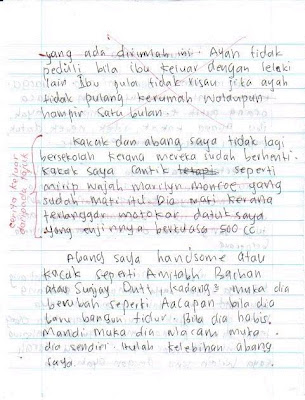 yang ada dirumah ini. Ayah tidak
peduli bila ibu keluar dengan lelaki
lain. Ibu pula tidak risau jika ayah
tidak pulang kerumah walaupun
hampir satu bulan.
Kakak dan abang saya tidak lagi
bersekolah kerana mereka sudah berhenti.
Kakak saya cantik tetapi seperti
mirip wajah marilyn monroe yang
sudah mati itu. Dia mati kerana
terlanggar motokar datuk saya
yang enjinnya berkuasa 500 cc
cerita keluar
daripada tajuk
Abang saya handsome atau
kacak seperti Amitabh Bachan
atau Sunjay Dutt. Kadang2 muka dia
berubah seperti Aacapan bila dia
baru bangun tidur. Bila dia habis
mandi muka dia macam muka
dia sendiri. Itulah kelebihan abang
saya.